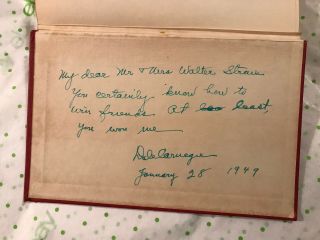 My dear Mr & Mrs Walter Straus
You certainly know how to
win friends At least
you won me
Dale Carnegie
January 28 1949